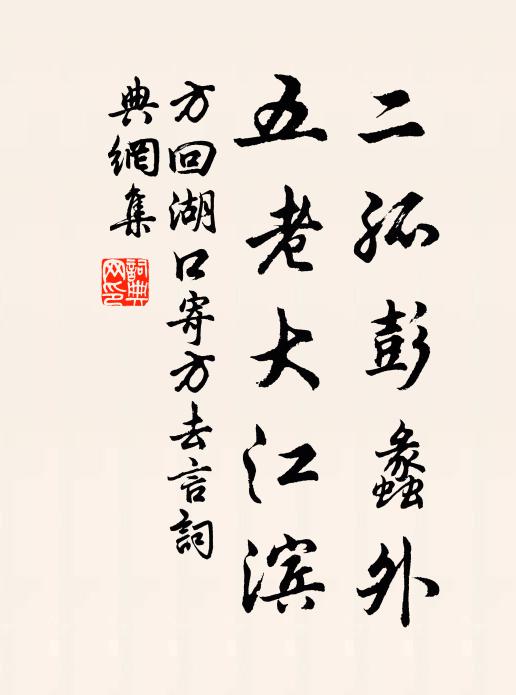 二孤彭蠡外
五老大江滨
方回湖口寄方去言詞
典網集
詞典网印